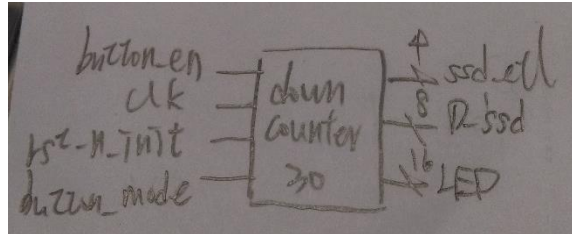 button_en
clk
rst_n_init
button_mode
down
counter
30
4
ssd_ctl
8
D_ssd
16
LED